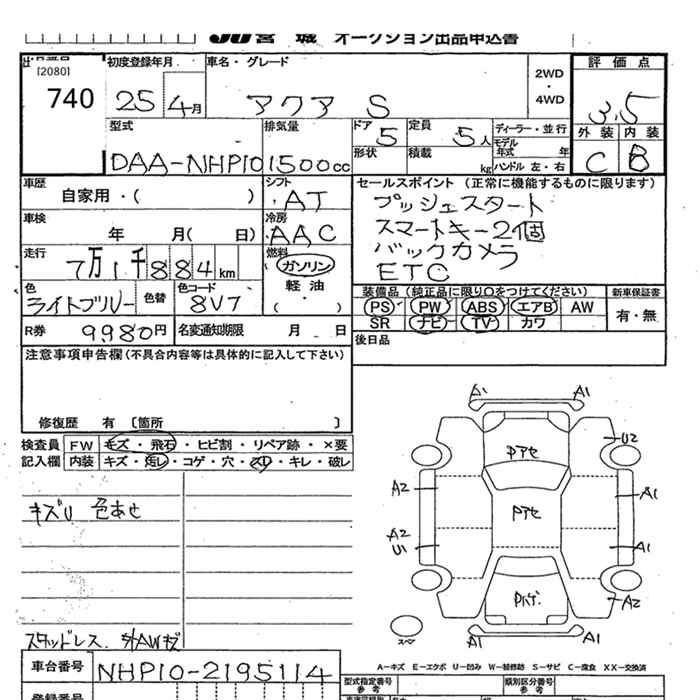 JU宮城 オークション出品申込書
出品番号 初度登録年月 車名・グレード 2WD・4WD 評価点
[2080]
740 25 4月 アクア S 3.5
型式 排気量 ドア 5 定員 5人 ディーラー・並行 外装 内装
DAA-NHP10 1500cc 形状 積載 kg モデル年式 年 C B
ハンドル 左・右
車歴 シフト セールスポイント (正常に機能するものに限ります)
自家用・( ) AT プッシュスタート
車検 冷房 スマートキー2個
年 月( 日) AAC バックカメラ
走行 燃料 ETC
7万1千884km ガソリン
色 色替 色コード 軽油 装備品(純正品に限り○をつけてください) 新車保証書
ライトブルー 8V7 PS PW ABS エアB AW 有・無
R券 9980円 名変通知期限 月 日 SR ナビ TV カワ
注意事項申告欄(不具合内容等は具体的に記入して下さい) 後日品
修復歴 有 〔箇所 〕
検査員 FW キズ・飛石・ヒビ割・リペア跡・×要
記入欄 内装 キズ・汚レ・コゲ・穴・スレ・キレ・破レ
キズU 色あせ
A1 A1
U2
Pアセ
A2 A1
Pアセ
A2
U1 A1
A2
スペア
A1 A1
A-キズ E-エクボ U-凹み W-補修跡 S-サビ C-腐食 XX-交換済
スタッドレス
車台番号 NHP10-2195114
型式指定番号 参考 類別区分番号 参考
登録番号